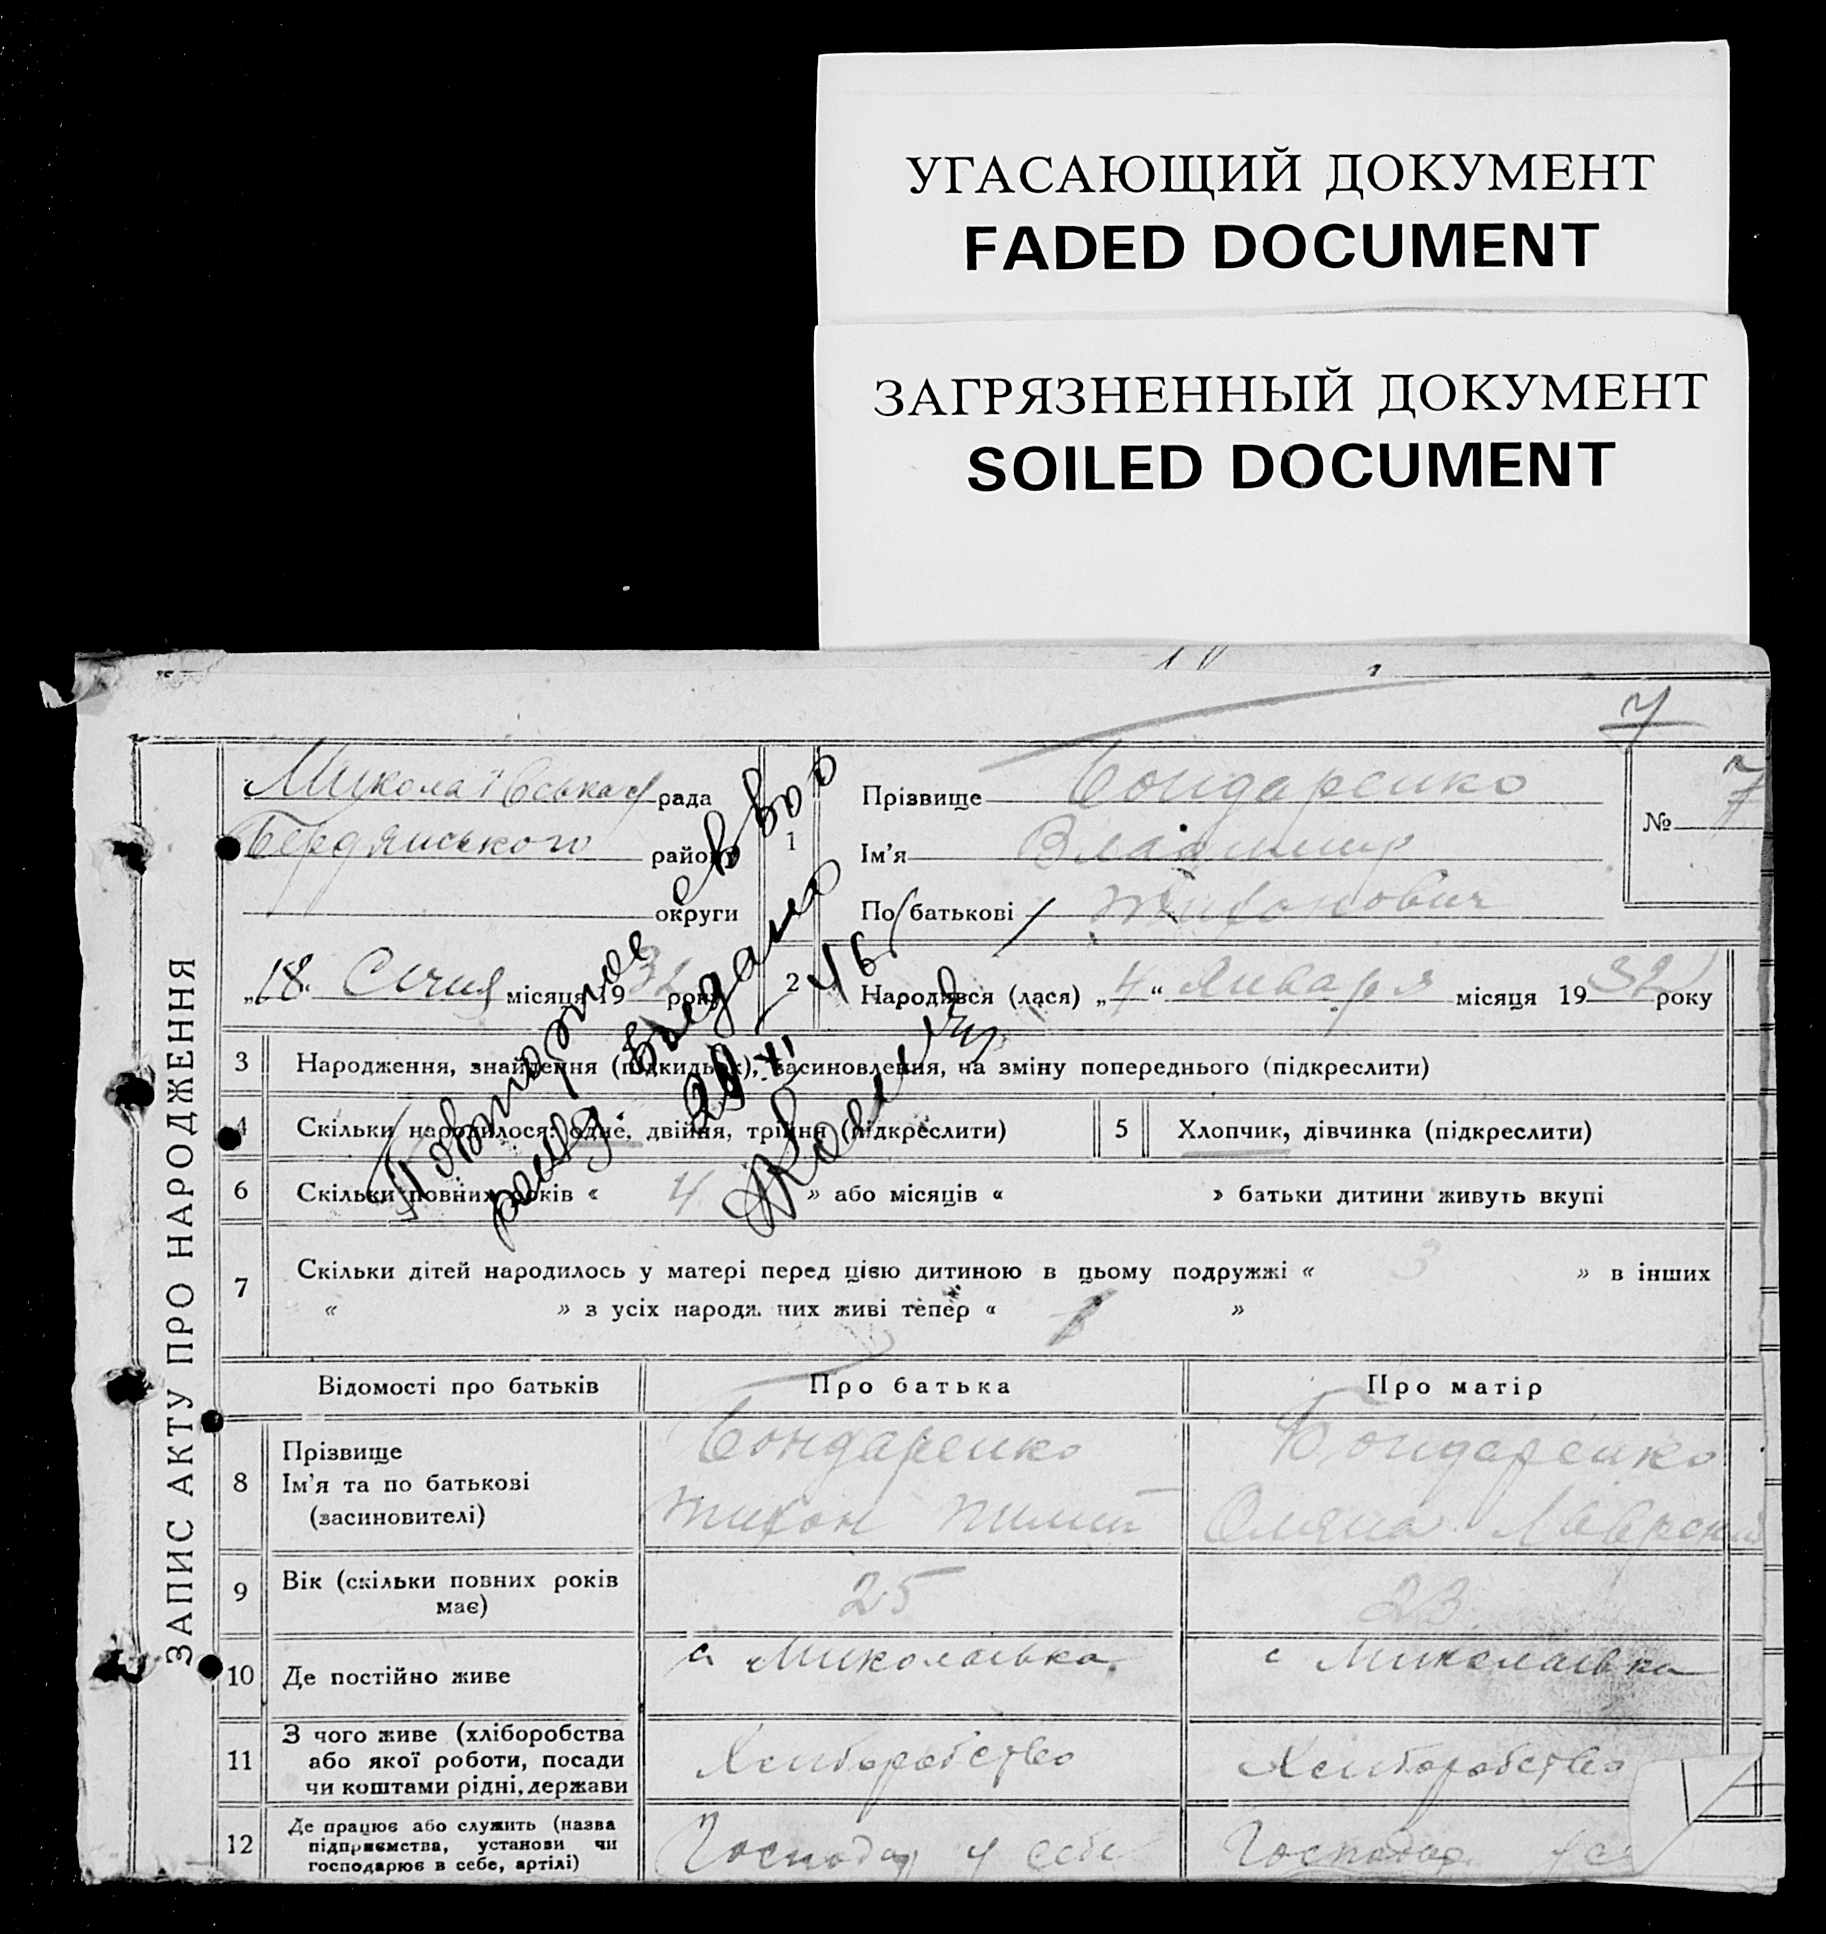 УГАСАЮЩИЙ ДОКУМЕНТ
FADED DOCUMENT
ЗАГРЯЗНЕННЫЙ ДОКУМЕНТ
SOILED DOCUMENT
7
ЗАПИС АКТУ ПРО НАРОДЖЕННЯ
Миколаївська рада
Бердянського району
округи
„18“ Січня місяця 1932 року
1
Прізвище Бондаренко
Ім'я Владимир
По батькові Тихонович
№ 7
2
Народився (лася) „4“ Января місяця 1932 року
Повторное свво
реции выдано
3 Народження, знайдення (підкидьок), засиновлення, на зміну попереднього (підкреслити)
4 Скільки народилося: одне, двійня, трійня (підкреслити)
5 Хлопчик, дівчинка (підкреслити)
6 Скільки повних років « 4 » або місяців « » батьки дитини живуть вкупі
7 Скільки дітей народилось у матері перед цією дитиною в цьому подружжі « 3 » в інших
« » з усіх народж них живі тепер « 1 »
Відомості про батьків Про батька Про матір
8 Прізвище
Ім'я та по батькові
(засиновителі)
Бондаренко
Тихон Пилип
Бондаренко
Оляна
9 Вік (скільки повних років
має)
25
23
10 Де постійно живе
с. Миколаївка
с Миколаївка
11 З чого живе (хліборобства
або якої роботи, посади
чи коштами рідні, держави
Хліборобство
Хліборобство
12 Де працює або служить (назва
підприємства, установи чи
господарює в себе, артілі)
Господар у себе
Господар у се